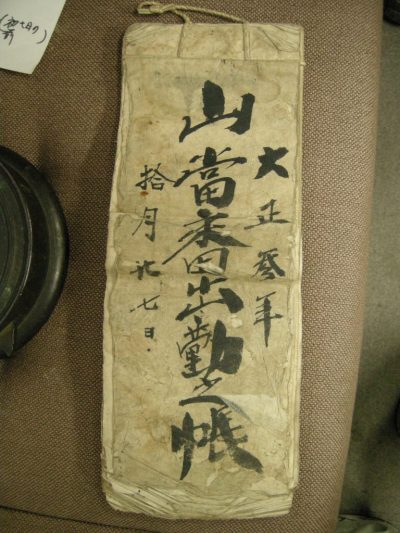 大正参年
山當番出勤之帳
拾月廿七日